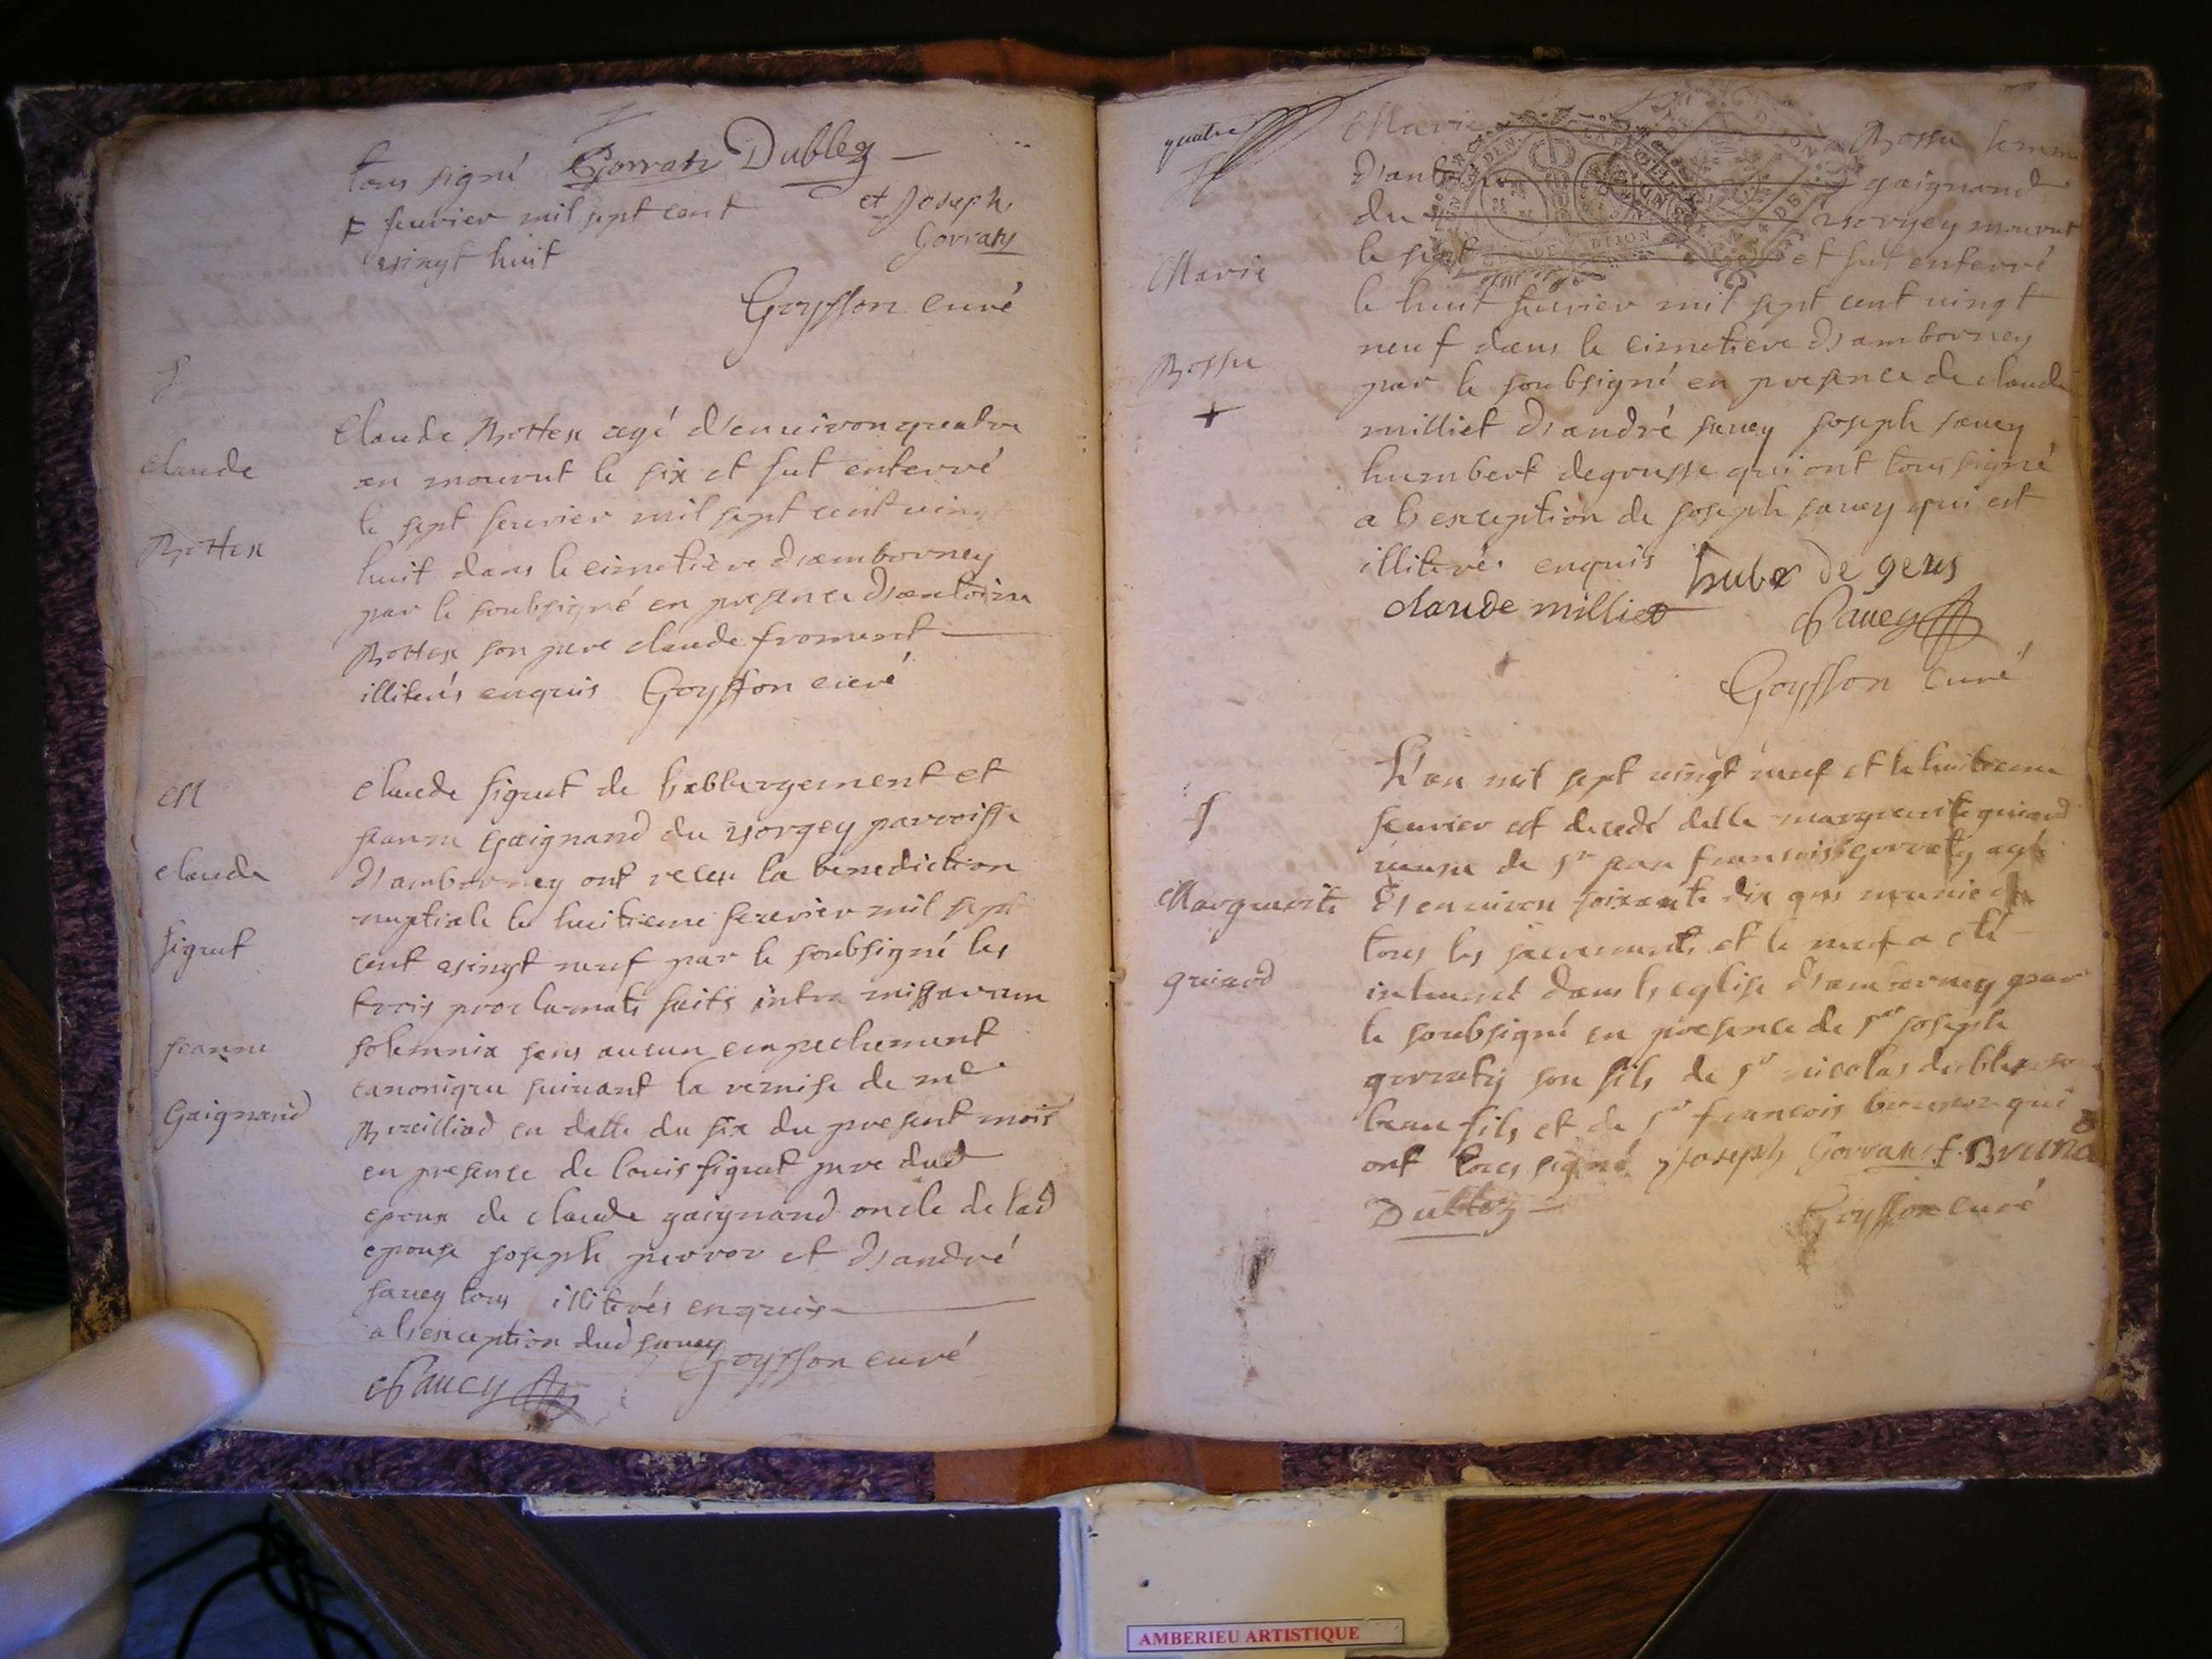 tous signé Gorraty Dubley
et Joseph
Gorraty
+ feurier mil sept cent
uingt huit
Goysson curé
claude
Bottex
Claude Bottex agé d'enuiron quatre
an mourut le six et fut enterré
le sept feurier mil sept cent uingt
huit dans le cimetiere d'ambornay
par le soubsigné en presence d'antoine
Bottex son pere claude froment
illiterés enquis Goysson curé
M
claude
figuet
jeanne
Gaignand
Claude figuet de l'abbergement et
jeanne Gaignand du uorgey parroisse
d'ambornay ont receu la benediction
nuptiale le huitieme feurier mil sept
cent uingt neuf par le soubsigné les
trois proclamats faits intra missarum
solemnia sans aucun empechement
canonique suiuant la remise de
en datte du six du present mois
en presence de louis figuet pere dud
epoux de claude gaignand oncle de lad
epouse joseph perror et d'andré
sauey tous illiterés enquis
a l'exception dud sauey
Goysson curé
Sauey
quatre
Marie
Bossu
Marie Bossu femme
gaignand
du uorgey mourut
le sept et fut enterré
le huit feurier mil sept cent uingt
neuf dans le cimetiere d'ambornay
par le soubsigné en presence de claude
milliet d'andré sauey joseph sauey
humbert degrusse qui ont tous signé
a l'exception de joseph sauey qui est
illiteré enquis
claude milliet
Sauey
Goysson curé
Marguerite
guiard
L'an mil sept uingt neuf et le huitieme
feurier est decedé delle marguerite guiard
ueuue de Sr jean francois gorraty agé
d'enuiron soixante dix ans munie de
tous les sacrements et le neuf a eté
inhumé dans l'eglise d'ambornay par
le soubsigné en presence de Sr joseph
gorraty son fils de Sr nicolas dubley son
beau fils et de Sr francois qui
ont tous signé Joseph Gorraty
Dubley
Goysson curé
AMBERIEU ARTISTIQUE